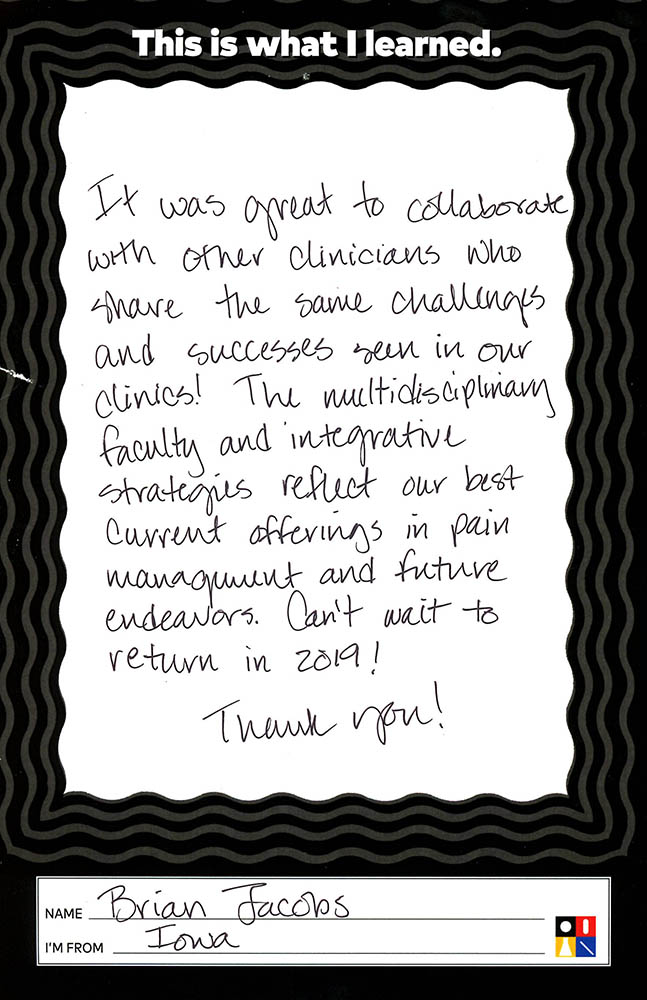 This is what I learned.
It was great to collaborate
with other clinicians who
share the same challenges
and successes seen in our
clinics! The multidisciplinary
faculty and integrative
strategies reflect our best
current offerings in pain
management and future
endeavors. Can't wait to
return in 2019!
Thank you!
NAME Brian Jacobs
I'M FROM Iowa